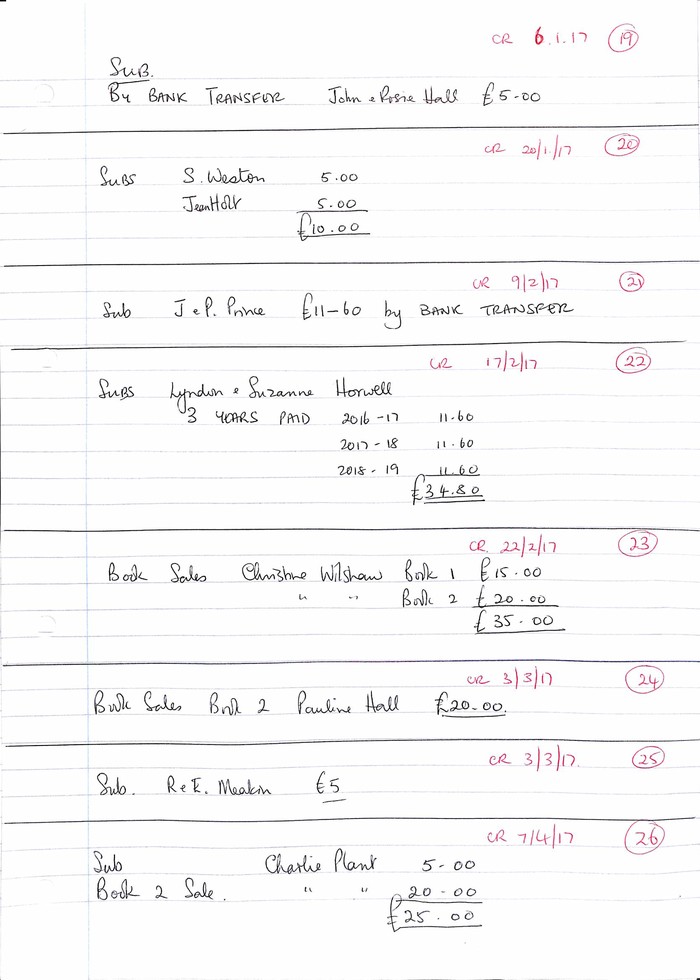 CR 6.1.17 19
SUB.
By BANK TRANSFER John & Rosie Hall £5-00
CR 20/1/17 20
SUBS S. Weston 5.00
Jean Holt 5.00
£10.00
CR 9/2/17 21
Sub J & P. Prince £11-60 by BANK TRANSFER
CR 17/2/17 22
SUBS Lyndon & Suzanne Horwell
3 YEARS PAID 2016-17 11.60
2017-18 11.60
2018-19 11.60
£34.80
CR. 22/2/17 23
Book Sales Christine Wilshaw Book 1 £15.00
" " Book 2 £20.00
£35.00
CR 3/3/17 24
Book Sales Book 2 Pauline Hall £20-00.
CR 3/3/17. 25
Sub. R & E. Meakin £5
CR 7/4/17 26
Sub Charlie Plant 5-00
Book 2 Sale. " " 20-00
£25.00